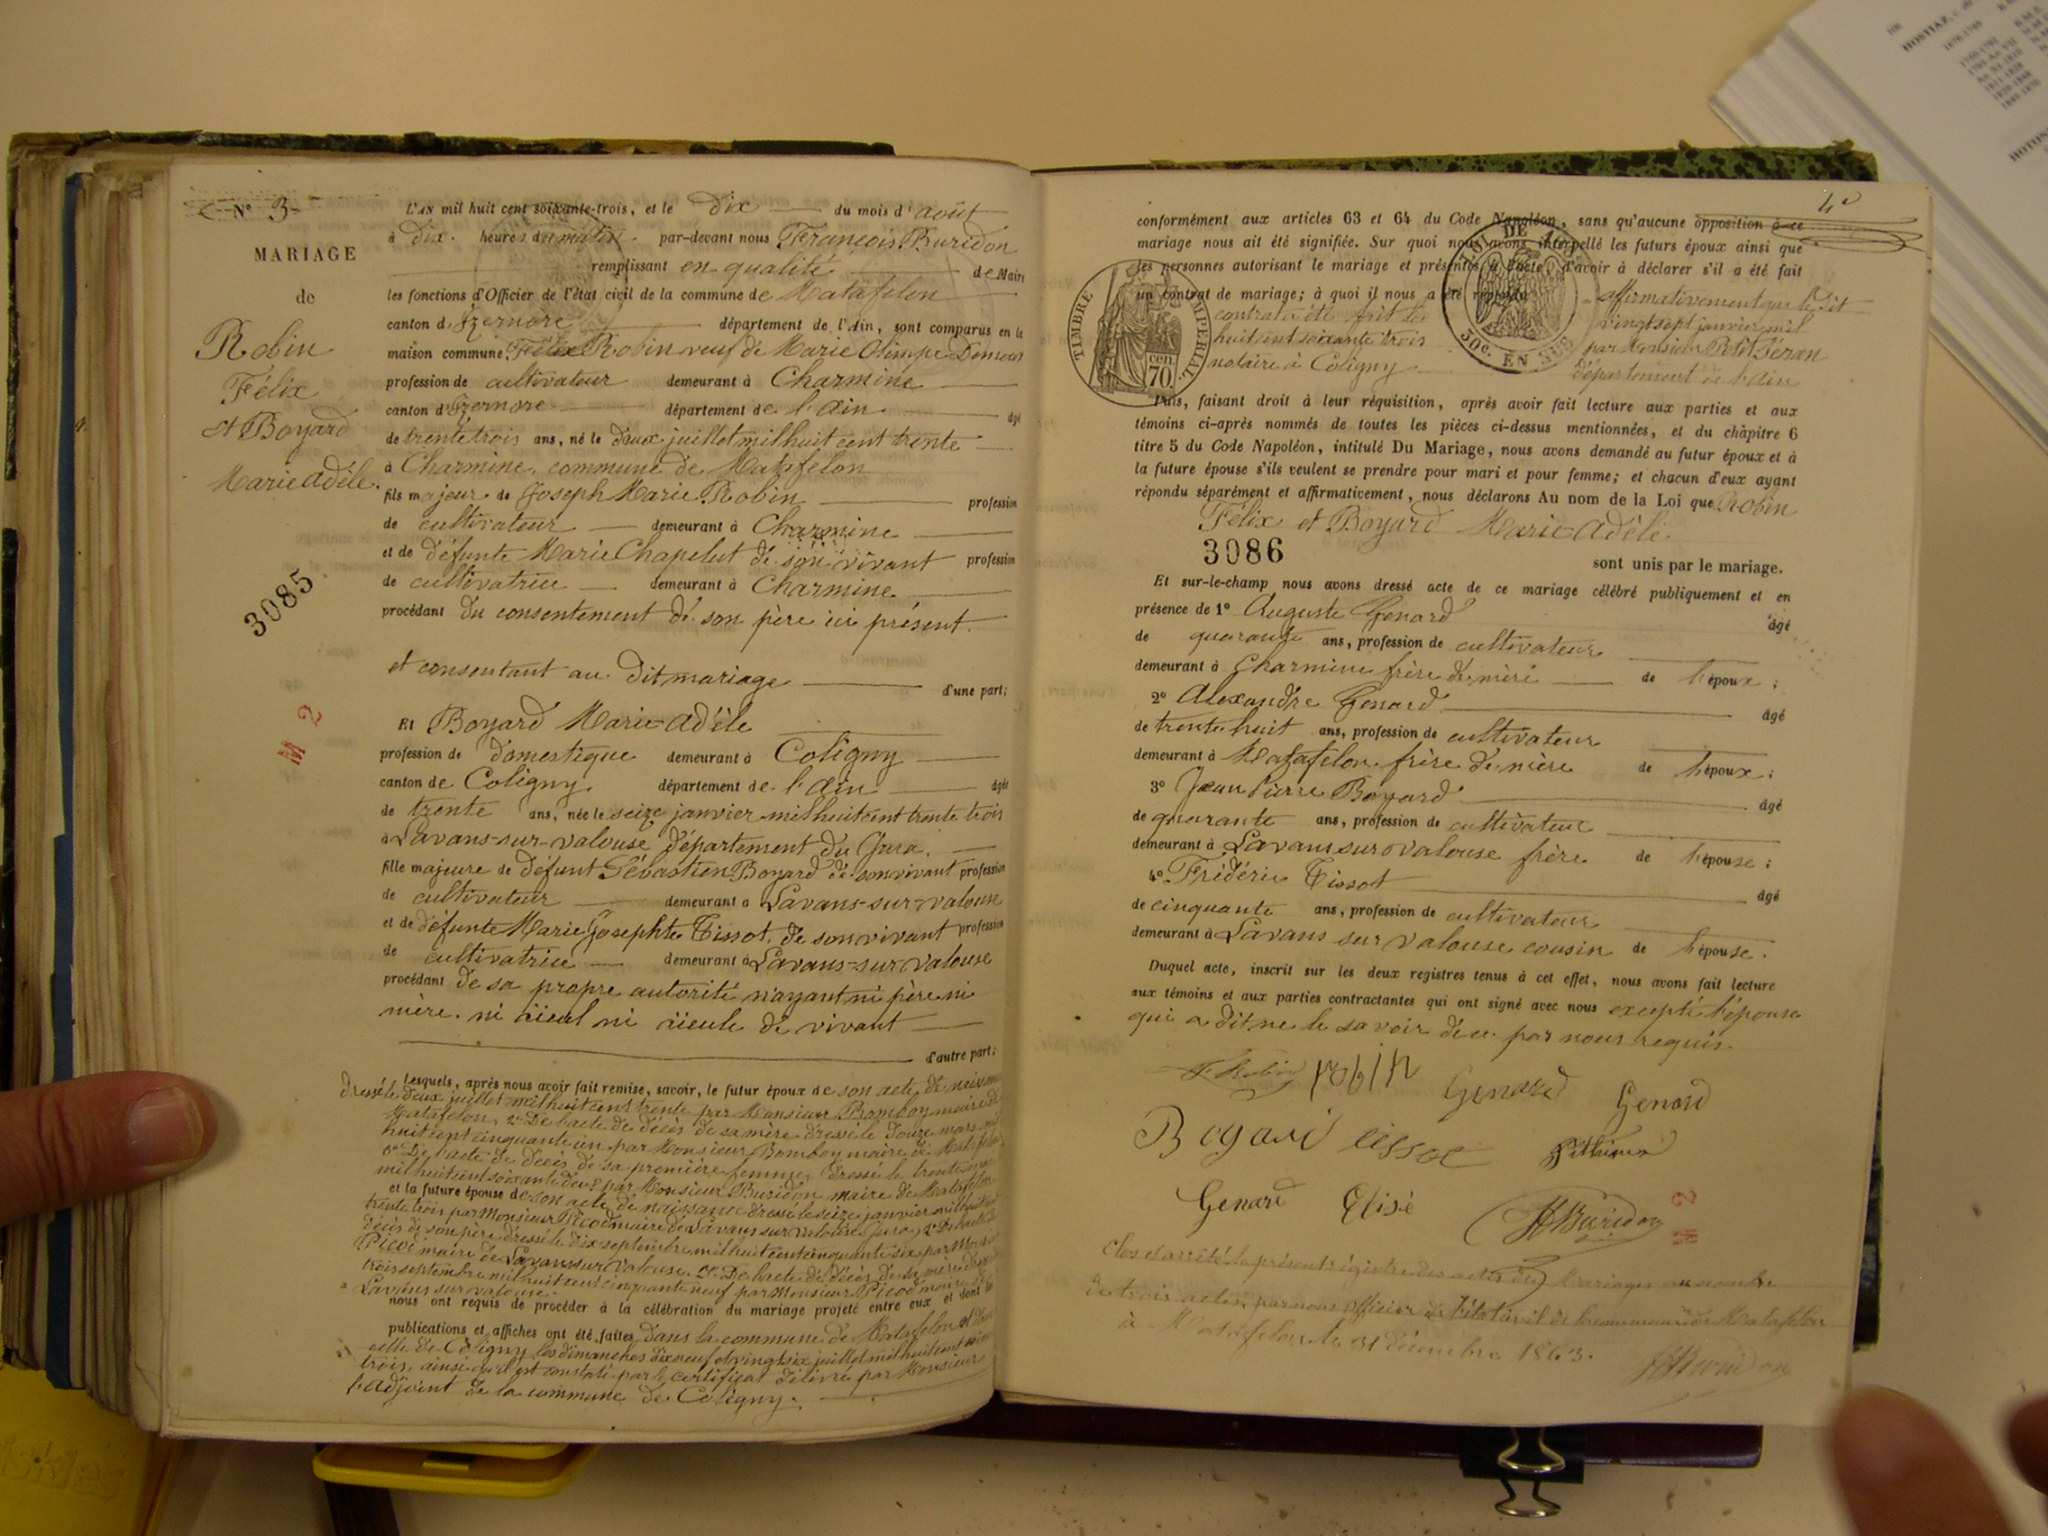 N° 3
MARIAGE
de
Robin
Félix
et Boyard
Marie Adèle.
3085
M 2
L'AN mil huit cent soixante-trois, et le dix du mois d'août
à dix heures du matin par-devant nous François Buridon
remplissant en qualité de Maire
les fonctions d'Officier de l'état civil de la commune de Matafelon
canton d'Izernore département de l'Ain, sont comparus en la
maison commune Félix Robin veuf de Marie Olimpe
profession de cultivateur demeurant à Charmine
canton d'Izernore département de l'Ain âgé
de trente trois ans, né le deux juillet mil huit cent trente
à Charmine, commune de Matafelon
fils majeur de Joseph Marie Robin profession
de cultivateur demeurant à Charmine
et de défunte Marie Chapelut de son vivant profession
de cultivatrice demeurant à Charmine
procédant du consentement de son père ici présent
et consentant au dit mariage d'une part;
Et Boyard Marie-Adèle
profession de domestique demeurant à Coligny
canton de Coligny département de l'Ain âgée
de trente ans, née le seize janvier mil huit cent trente trois
à Lavans-sur-Valouse département du Jura,
fille majeure de défunt Sébastien Boyard de son vivant profession
de cultivateur demeurant à Lavans-sur-Valouse
et de défunte Marie Josephte Tissot, de son vivant profession
de cultivatrice demeurant à Lavans-sur-Valouse
procédant de sa propre autorité n'ayant ni père ni
mère, ni aïeul ni aïeule de vivant
d'autre part;
Lesquels, après nous avoir fait remise, savoir, le futur époux de son acte de naissance
dressé le deux juillet mil huit cent trente par Monsieur Bomboy maire de
Matafelon, 2° De l'acte de décès de sa mère dressé le douze mars mil
huit cent cinquante un par Monsieur Bomboy maire de Matafelon
3° De l'acte de décès de sa première femme, dressé le trente
mil huit cent soixante deux par Monsieur Buridon maire de Matafelon
et la future épouse de son acte de naissance dressé le seize janvier mil huit cent
trente trois par Monsieur Picod maire de Lavans sur Valouse, Jura, 2° De l'acte de
décès de son père dressé le dix septembre mil huit cent cinquante six par Monsieur
Picod maire de Lavans sur Valouse. De l'acte de décès de sa mère dressé
trois septembre mil huit cent cinquante neuf par Monsieur Picod maire de
Lavans sur Valouse.
nous ont requis de procéder à la célébration du mariage projeté entre eux et dont les
publications et affiches ont été faites dans la commune de Matafelon et dans
celle de Coligny les dimanches dix neuf et vingt six juillet mil huit cent soixante
trois, ainsi qu'il est constaté par le certificat délivré par Monsieur
l'adjoint de la commune de Coligny.
conformément aux articles 63 et 64 du Code Napoléon, sans qu'aucune opposition à ce
mariage nous ait été signifiée. Sur quoi nous avons interpellé les futurs époux ainsi que
les personnes autorisant le mariage et présentes à l'acte, d'avoir à déclarer s'il a été fait
un contrat de mariage; à quoi il nous a été répondu affirmativement que le dit
contrat a été fait le vingt sept janvier mil
huit cent soixante trois par Monsieur
notaire à Coligny département de l'Ain
TIMBRE IMPERIAL
70 cen
30c. EN SUS
Puis, faisant droit à leur réquisition, après avoir fait lecture aux parties et aux
témoins ci-après nommés de toutes les pièces ci-dessus mentionnées, et du châpitre 6
titre 5 du Code Napoléon, intitulé Du Mariage, nous avons demandé au futur époux et à
la future épouse s'ils veulent se prendre pour mari et pour femme; et chacun d'eux ayant
répondu séparément et affirmativement, nous déclarons Au nom de la Loi que Robin
Félix et Boyard Marie-Adèle
3086
sont unis par le mariage.
Et sur-le-champ nous avons dressé acte de ce mariage célébré publiquement et en
présence de 1° Auguste Genard âgé
de quarante ans, profession de cultivateur
demeurant à Charmine frère de mère de l'époux;
2° Alexandre Genard âgé
de trente huit ans, profession de cultivateur
demeurant à Matafelon frère de mère de l'époux;
3° Jean Pierre Boyard âgé
de quarante ans, profession de cultivateur
demeurant à Lavans sur Valouse frère de l'épouse;
4° Frédéric Tissot âgé
de cinquante ans, profession de cultivateur
demeurant à Lavans sur Valouse cousin de l'épouse.
Duquel acte, inscrit sur les deux registres tenus à cet effet, nous avons fait lecture
aux témoins et aux parties contractantes qui ont signé avec nous excepté l'épouse
qui a dit ne le savoir de ce par nous requis.
F. Robin Genard Genard
Boyard tissot
Genard Elisé Buridon
M 2
Clos et arrêté le présent régistre des actes de Mariages au nombre
de trois actes, par nous officier de l'état civil de la commune de Matafelon
à Matafelon le 31 décembre 1863.
Buridon